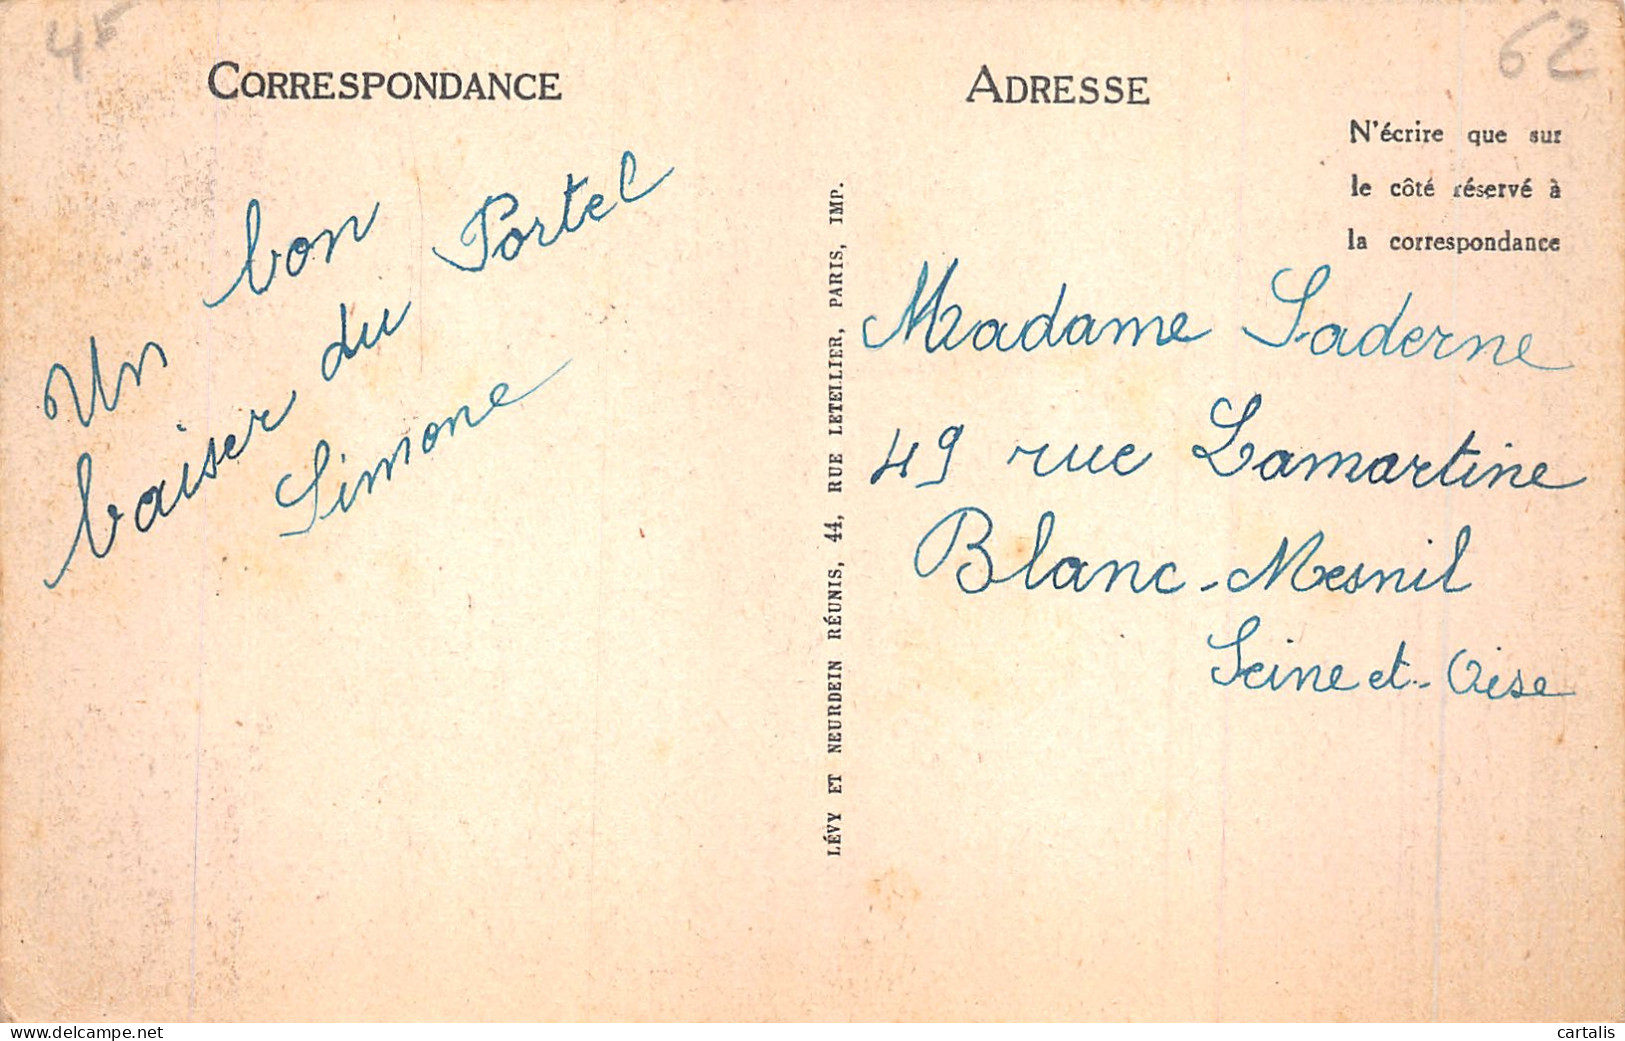 4F
62
CORRESPONDANCE
ADRESSE
N'écrire que sur
le côté réservé à
la correspondance
Un bon
baiser du Portel
Simone
LÉVY ET NEURDEIN RÉUNIS, 44, RUE LETELLIER, PARIS, IMP.
Madame Saderne
49 rue Lamartine
Blanc-Mesnil
Seine et-Oise
delcampe.net
cartalis